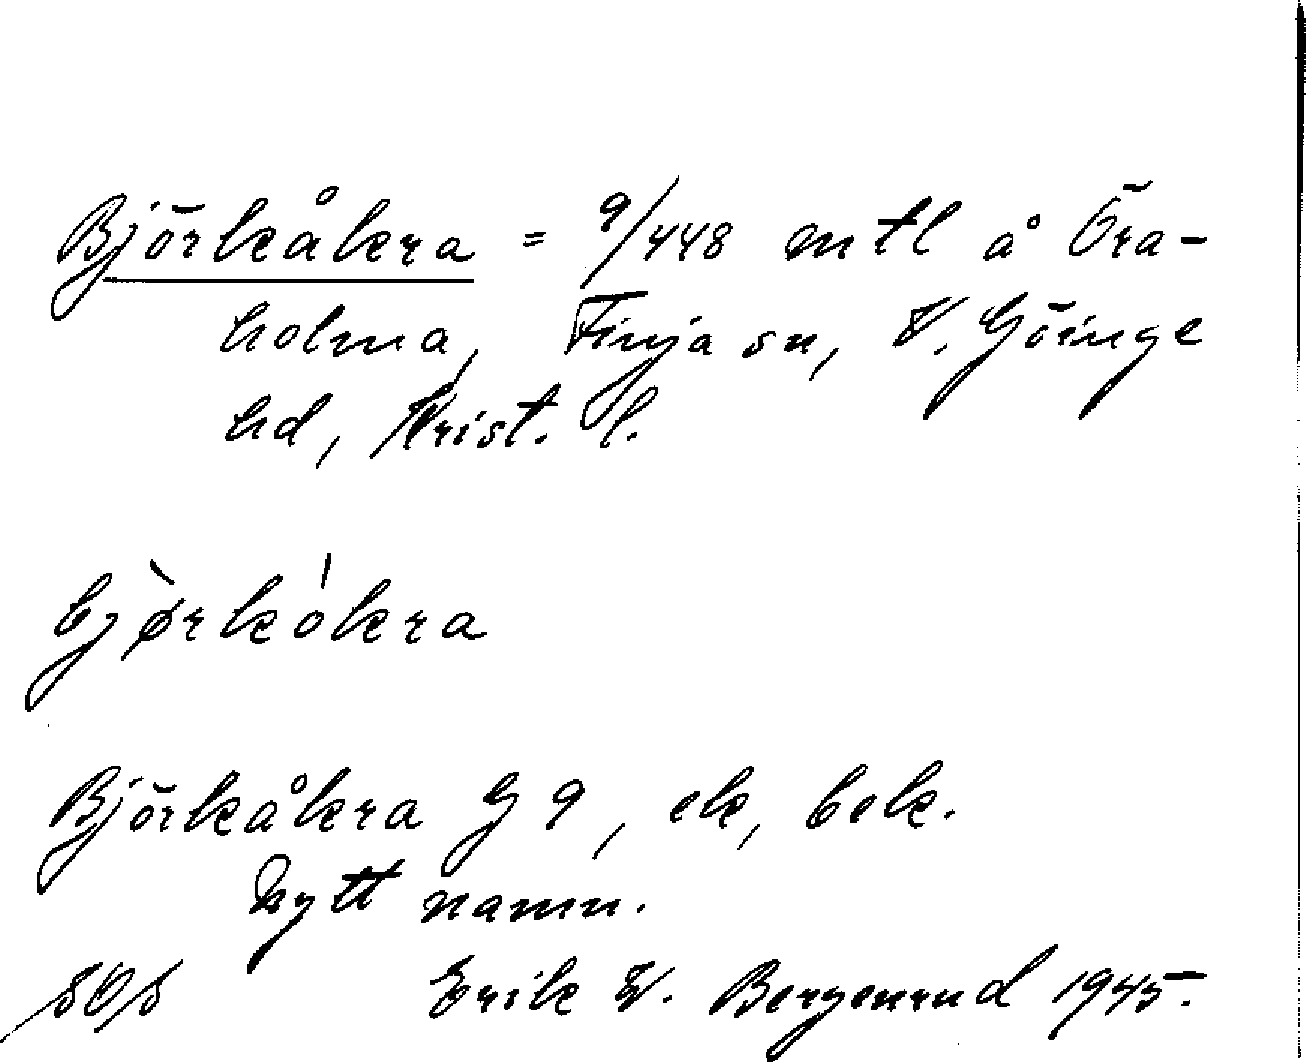 Björkåkra = 9/448 mtl å Öra-
holma, Finja sn, V. Göinge
hd, Krist. l.
bjø̀rkókra
Björkåkra G 9, ek, bek.
Nytt namn.
SOS Erik W. Bergenrud 1945.